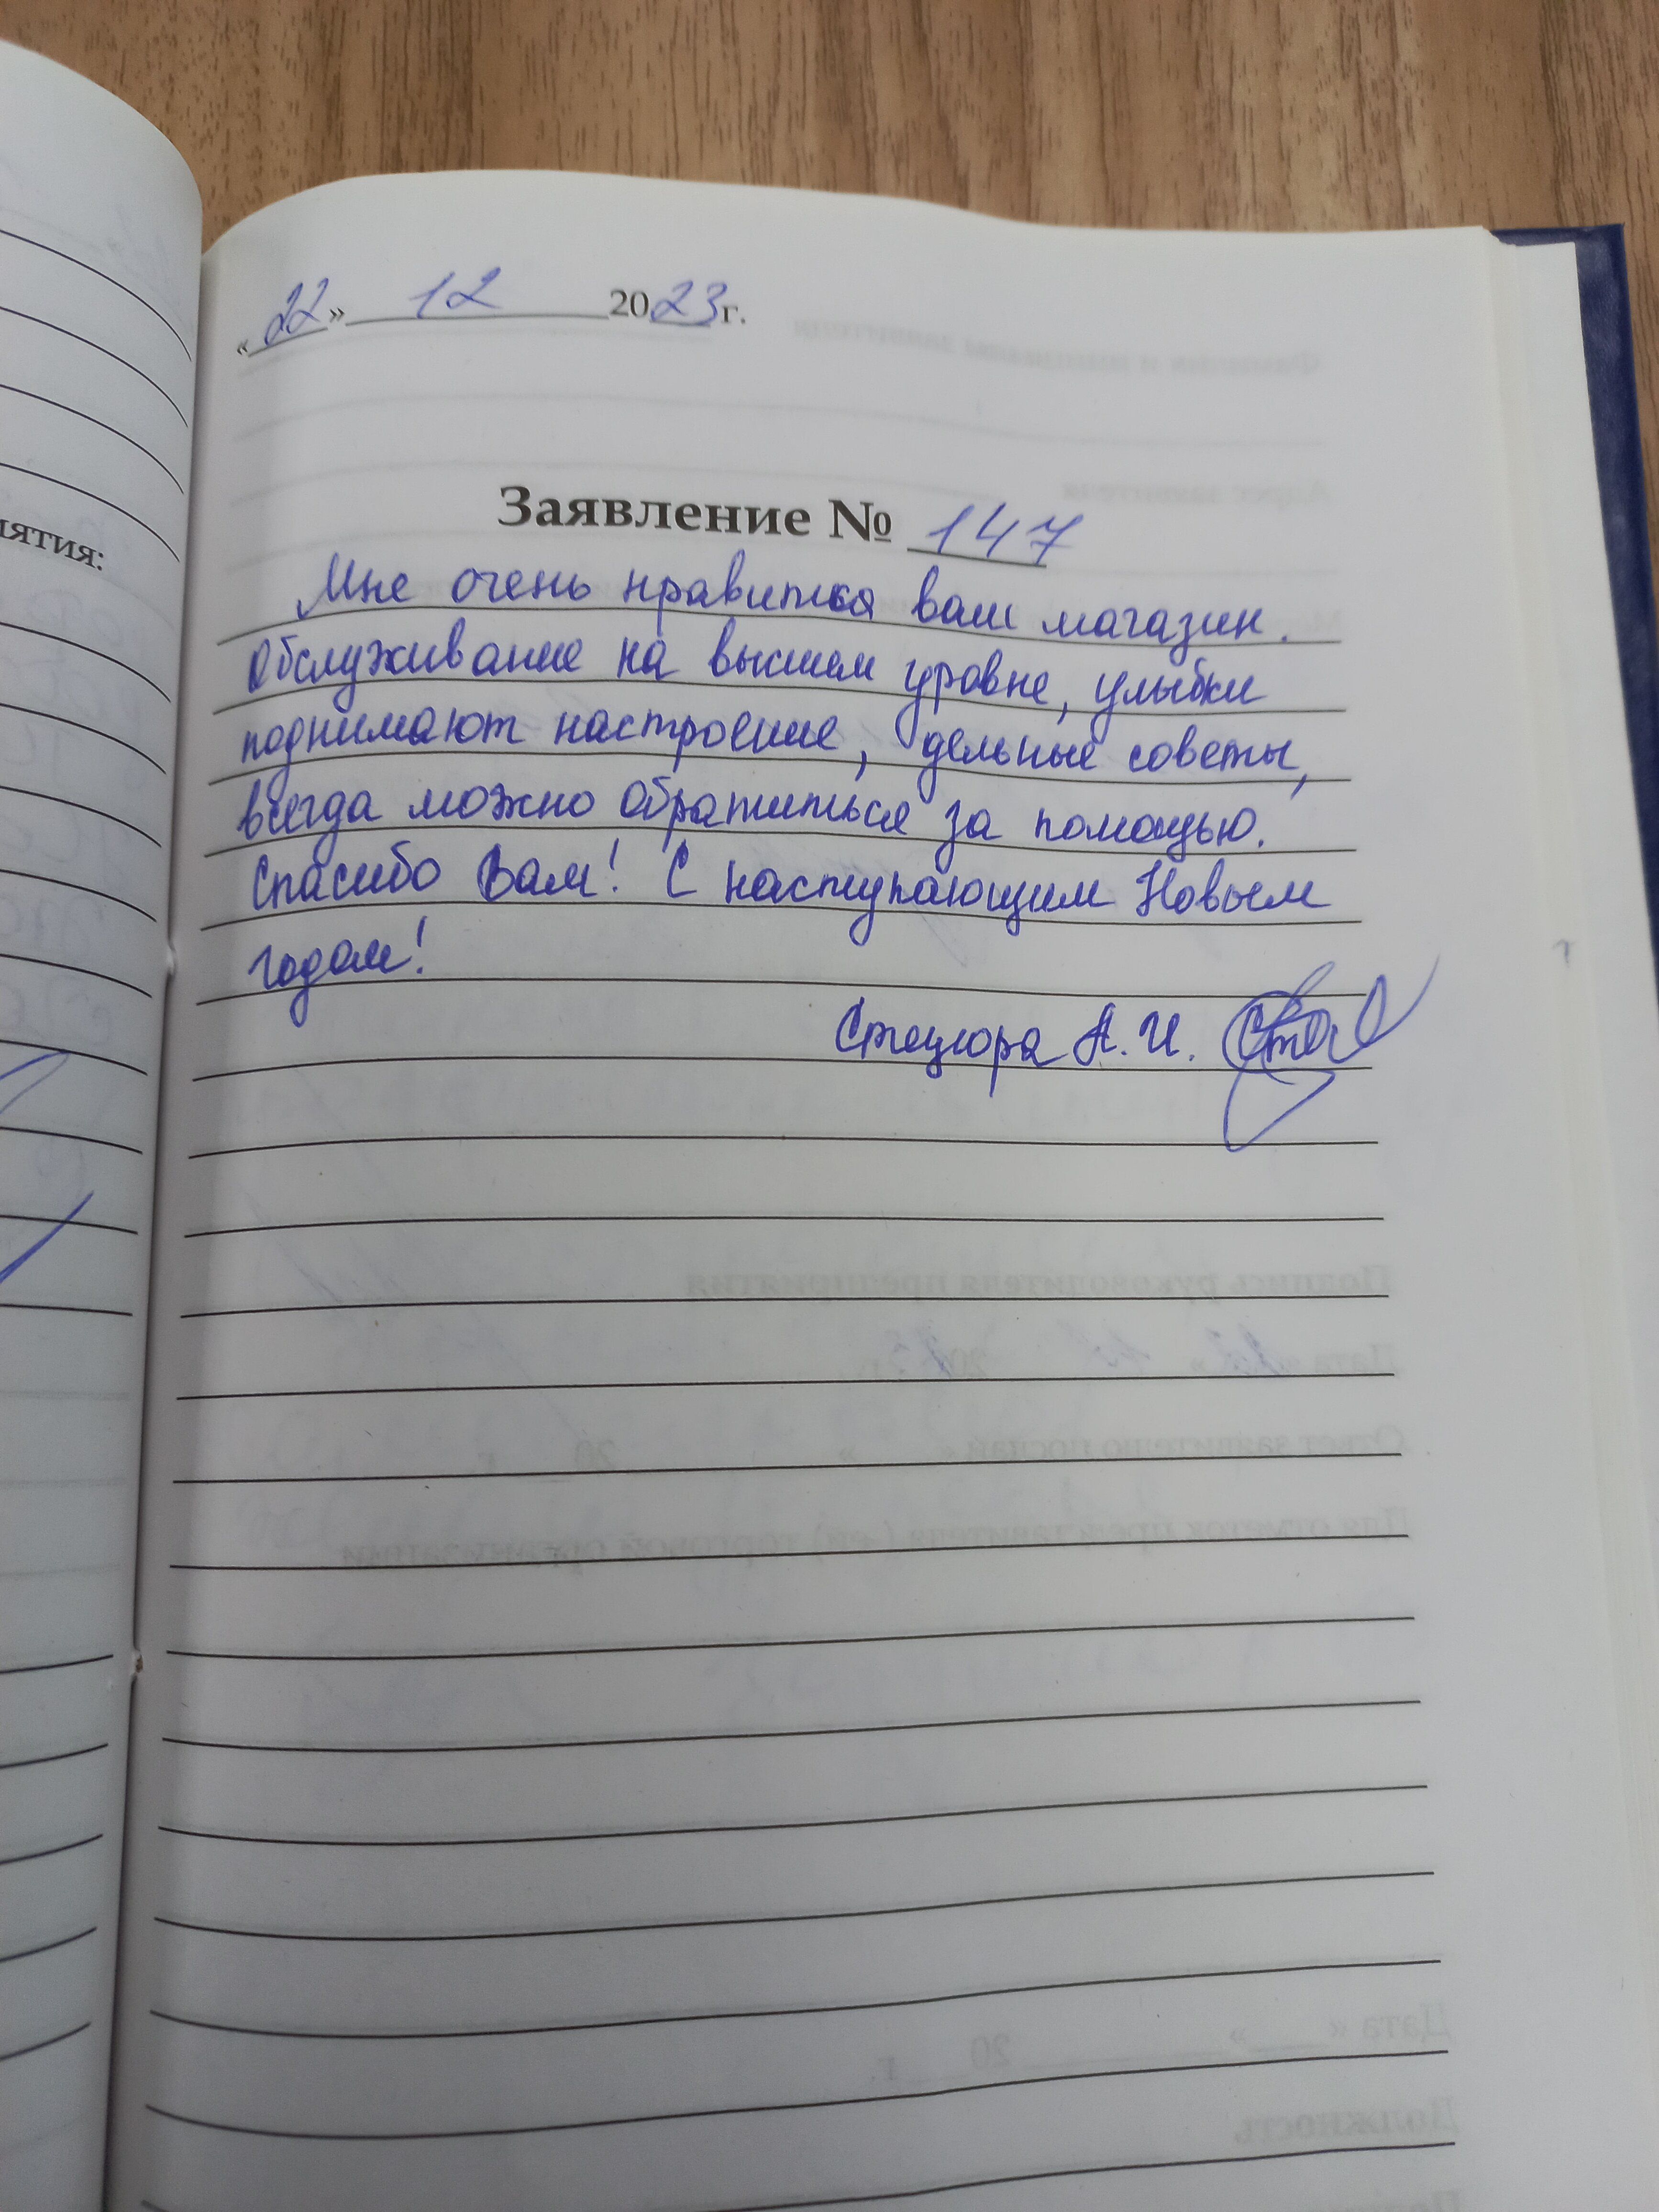 «22» 12 2023г.
Заявление № 147
Мне очень нравится ваш магазин.
Обслуживание на высшем уровне, улыбки
поднимают настроение, дельные советы,
всегда можно обратиться за помощью.
Спасибо Вам! С наступающим Новым
годом!
Стецюра А. И.
иятия: